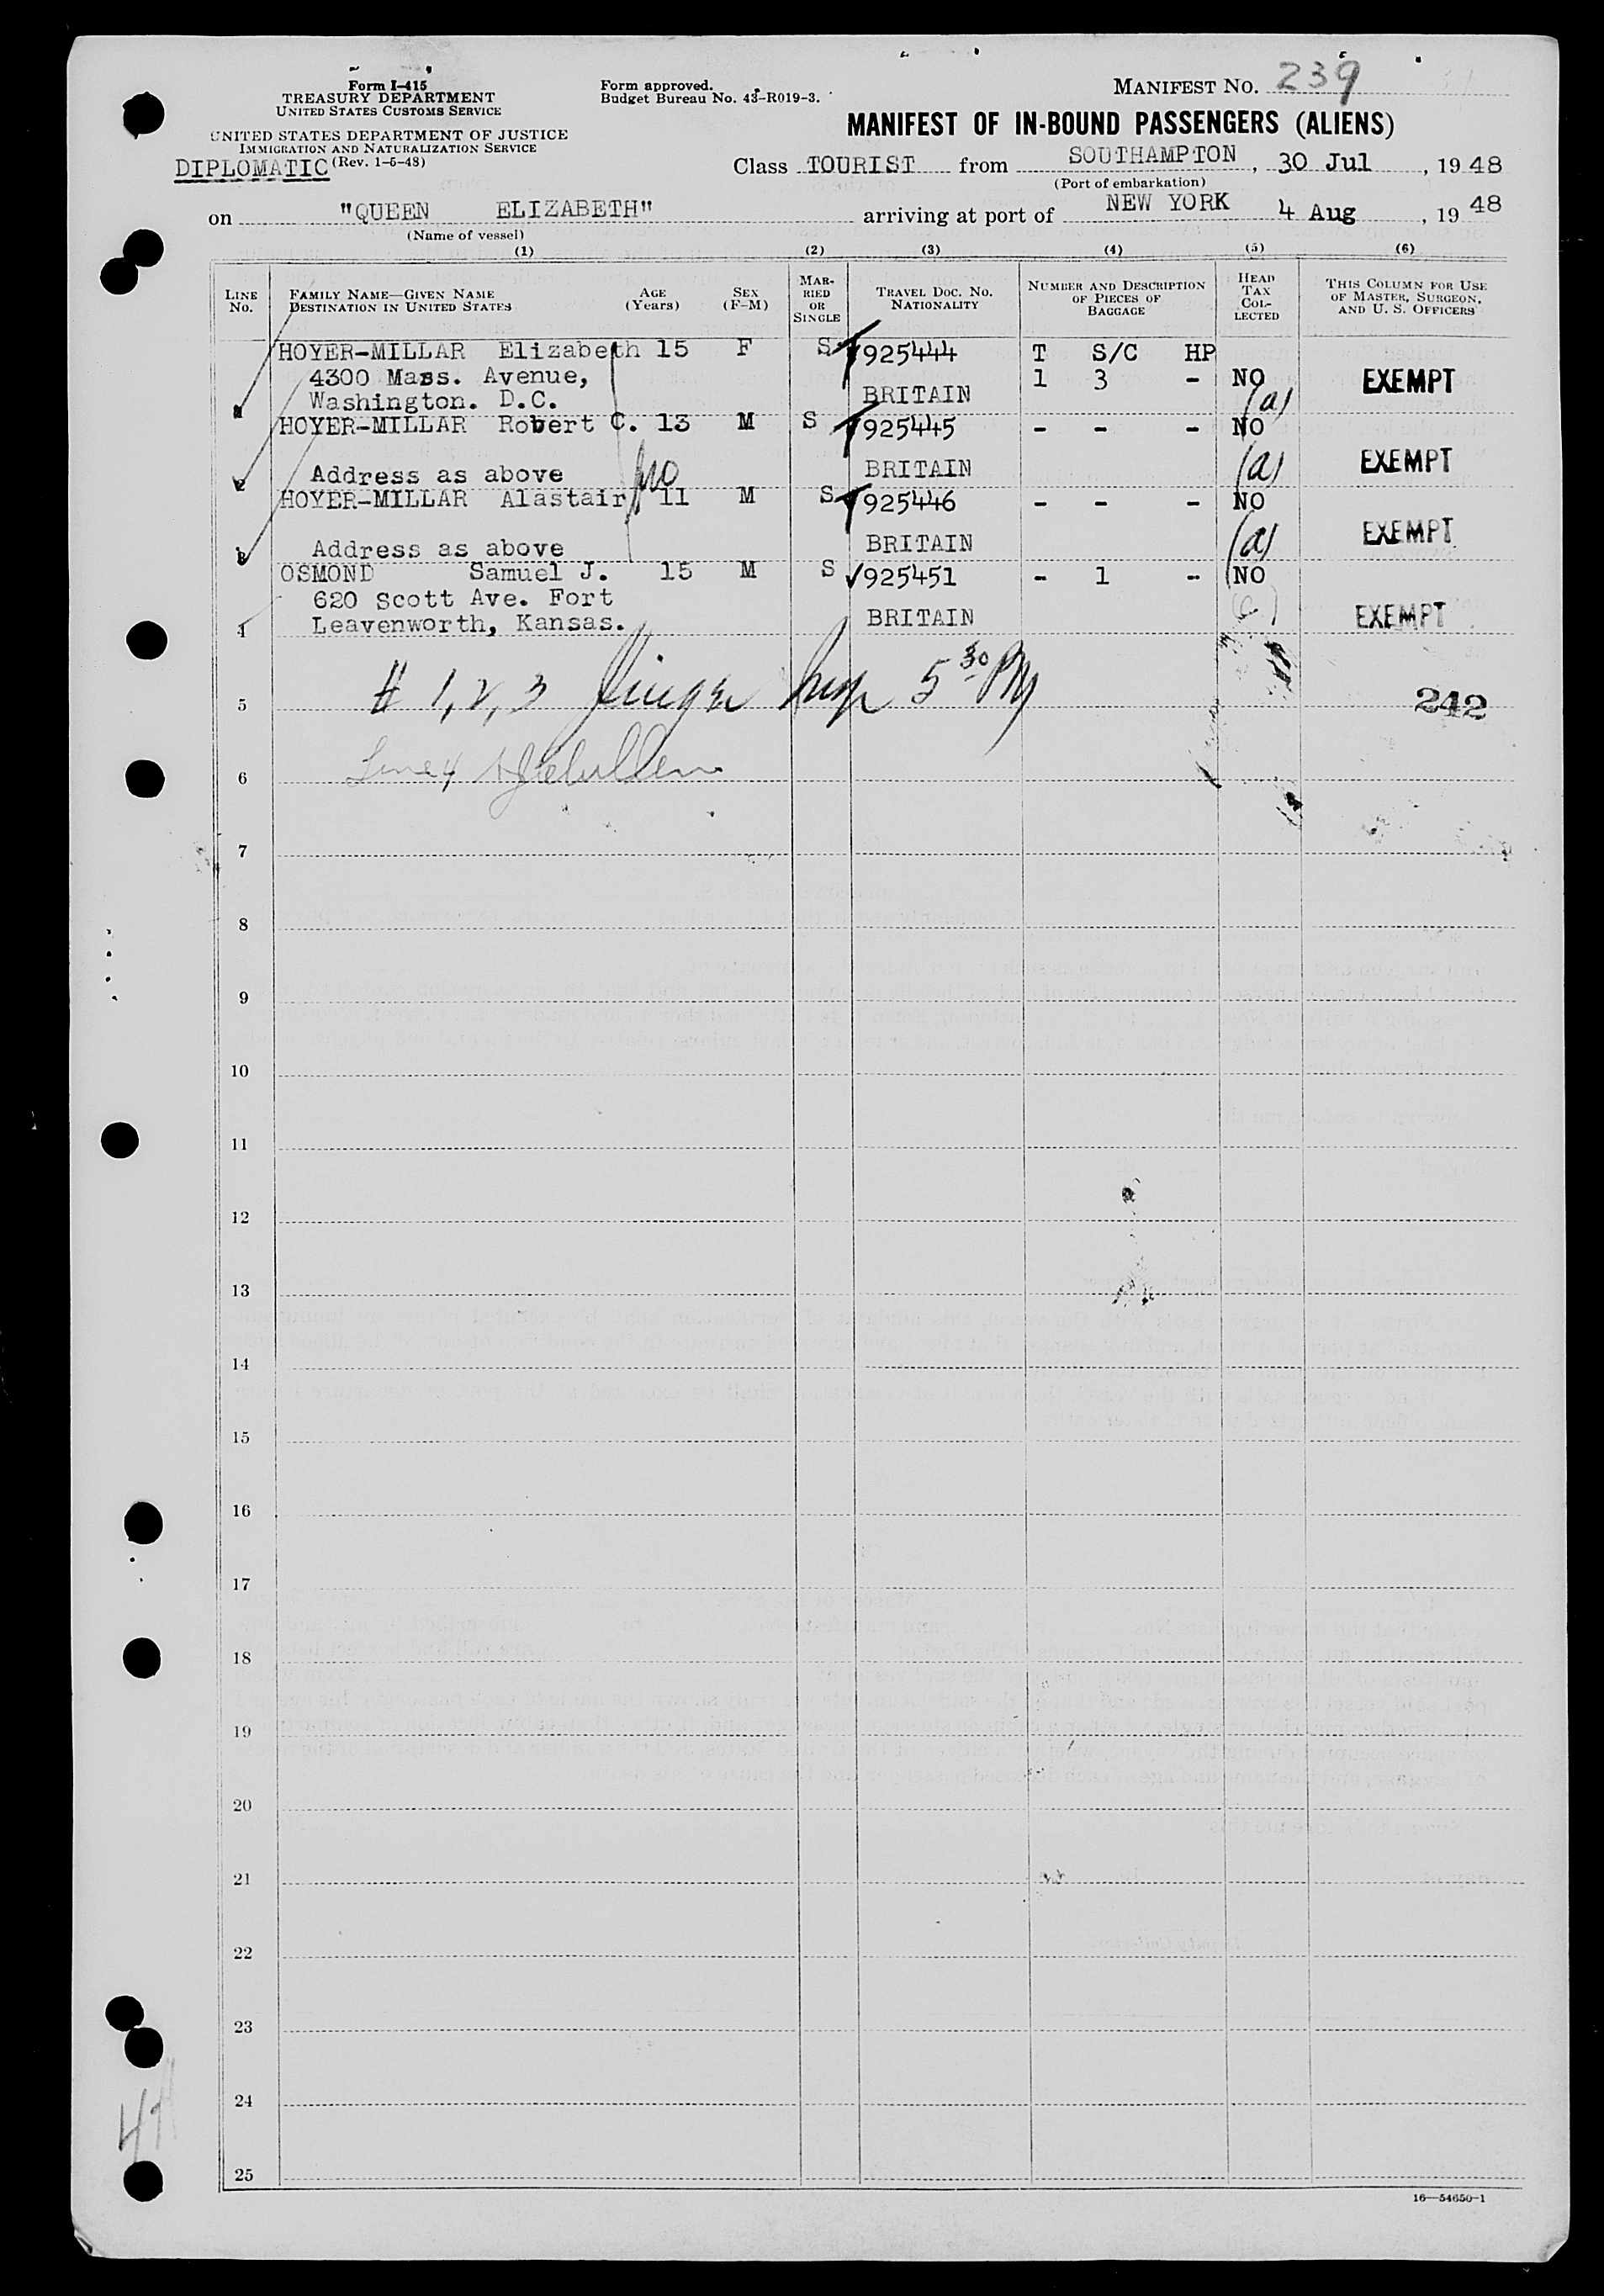 Form I-415
TREASURY DEPARTMENT
UNITED STATES CUSTOMS SERVICE
UNITED STATES DEPARTMENT OF JUSTICE
IMMIGRATION AND NATURALIZATION SERVICE
(Rev. 1-6-48)
DIPLOMATIC
Form approved.
Budget Bureau No. 43-R019-3.
MANIFEST NO. 239
MANIFEST OF IN-BOUND PASSENGERS (ALIENS)
Class TOURIST from SOUTHAMPTON, 30 Jul, 1948
(Port of embarkation)
on "QUEEN ELIZABETH" arriving at port of NEW YORK 4 Aug, 1948
(Name of vessel)
(1) (2) (3) (4) (5) (6)
LINE NO.
FAMILY NAME—GIVEN NAME DESTINATION IN UNITED STATES
AGE (Years)
SEX (F-M)
MARRIED OR SINGLE
TRAVEL DOC. NO. NATIONALITY
NUMBER AND DESCRIPTION OF PIECES OF BAGGAGE
HEAD TAX COLLECTED
THIS COLUMN FOR USE OF MASTER, SURGEON, AND U. S. OFFICERS
HOYER-MILLAR Elizabeth 15 F S 925444 T S/C HP
4300 Mass. Avenue, 1 3 - NO EXEMPT
Washington. D.C. BRITAIN (a)
HOYER-MILLAR Robert C. 13 M S 925445 - - - NO
2 Address as above BRITAIN (a) EXEMPT
HOYER-MILLAR Alastair 11 M S 925446 - - - NO
3 Address as above BRITAIN (a) EXEMPT
OSMOND Samuel J. 15 M S 925451 - 1 - NO
620 Scott Ave. Fort
4 Leavenworth, Kansas. BRITAIN EXEMPT
5 # 1, 2, 3 5 30 PM 242
6
7
8
9
10
11
12
13
14
15
16
17
18
19
20
21
22
23
24
25
16—54650-1